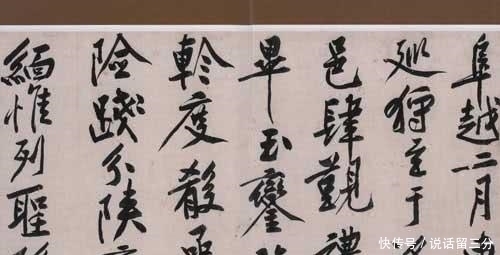 阜越二月
廵狩至于
邑肆覲禮
畢玉鑾
軫度殽
險踐分陝
緬惟列聖
快传号／说话留三分